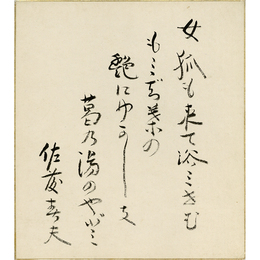 女狐も来て浴ミきむ
もみぢ葉の
艶にゆかしき
葛の湯のやどミ
佐藤春夫